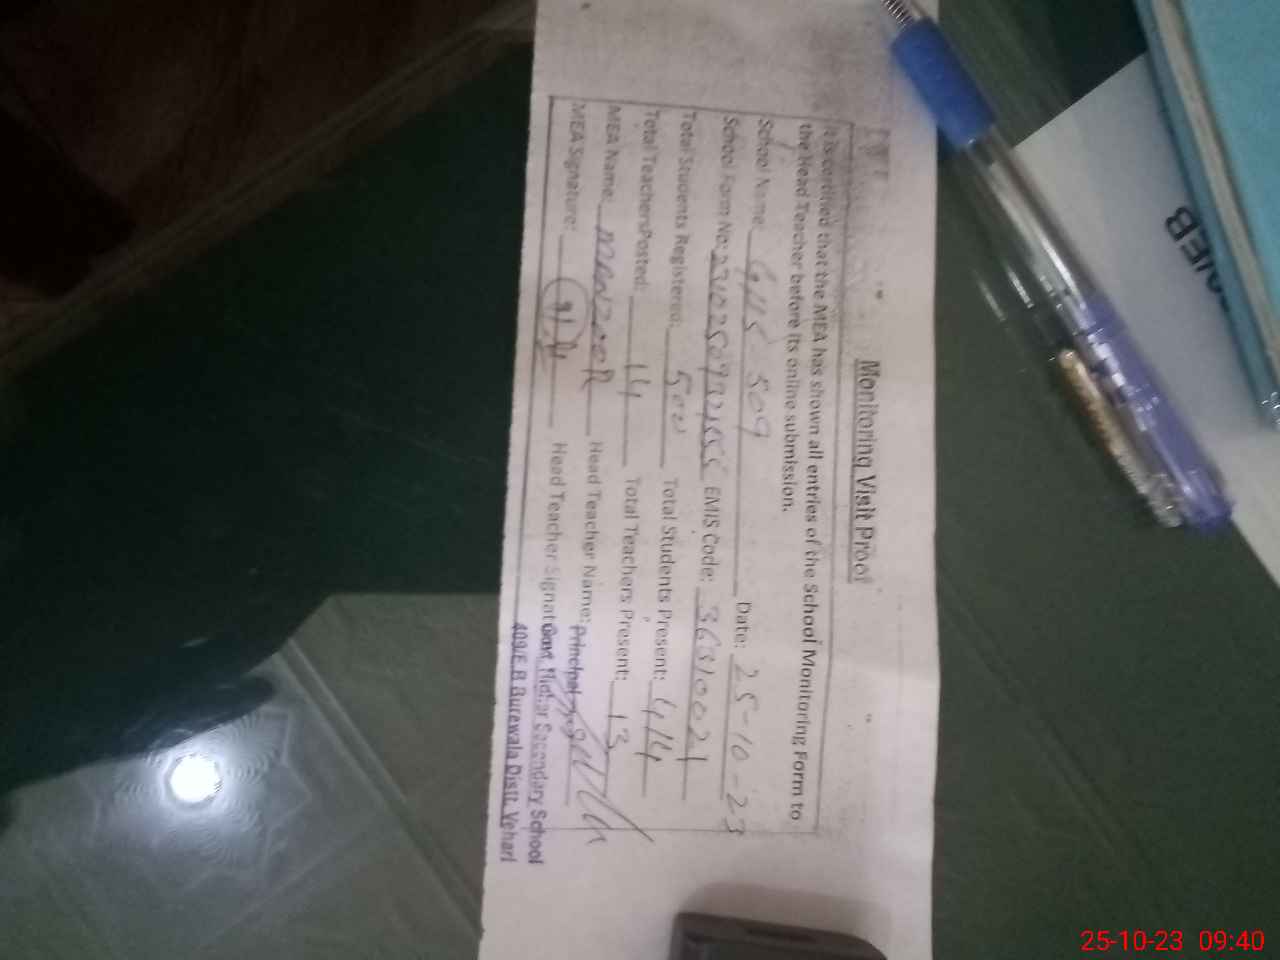 Monitoring Visit Proof
It is certified that the MEA has shown all entries of the School Monitoring Form to
the Head Teacher before its online submission.
School Name: GHS 509 Date: 25-10-23
School Form No: EMIS Code: 36310021
Total Students Registered: 500 Total Students Present: 414
Total Teachers Posted: 14 Total Teachers Present: 13
MEA Name: MANZOOR Head Teacher Name:
Principal
MEA Signature: Head Teacher Signature
Govt. Higher Secondary School
409/E.B Burewala Distt. Vehari
NEB
25-10-23 09:40